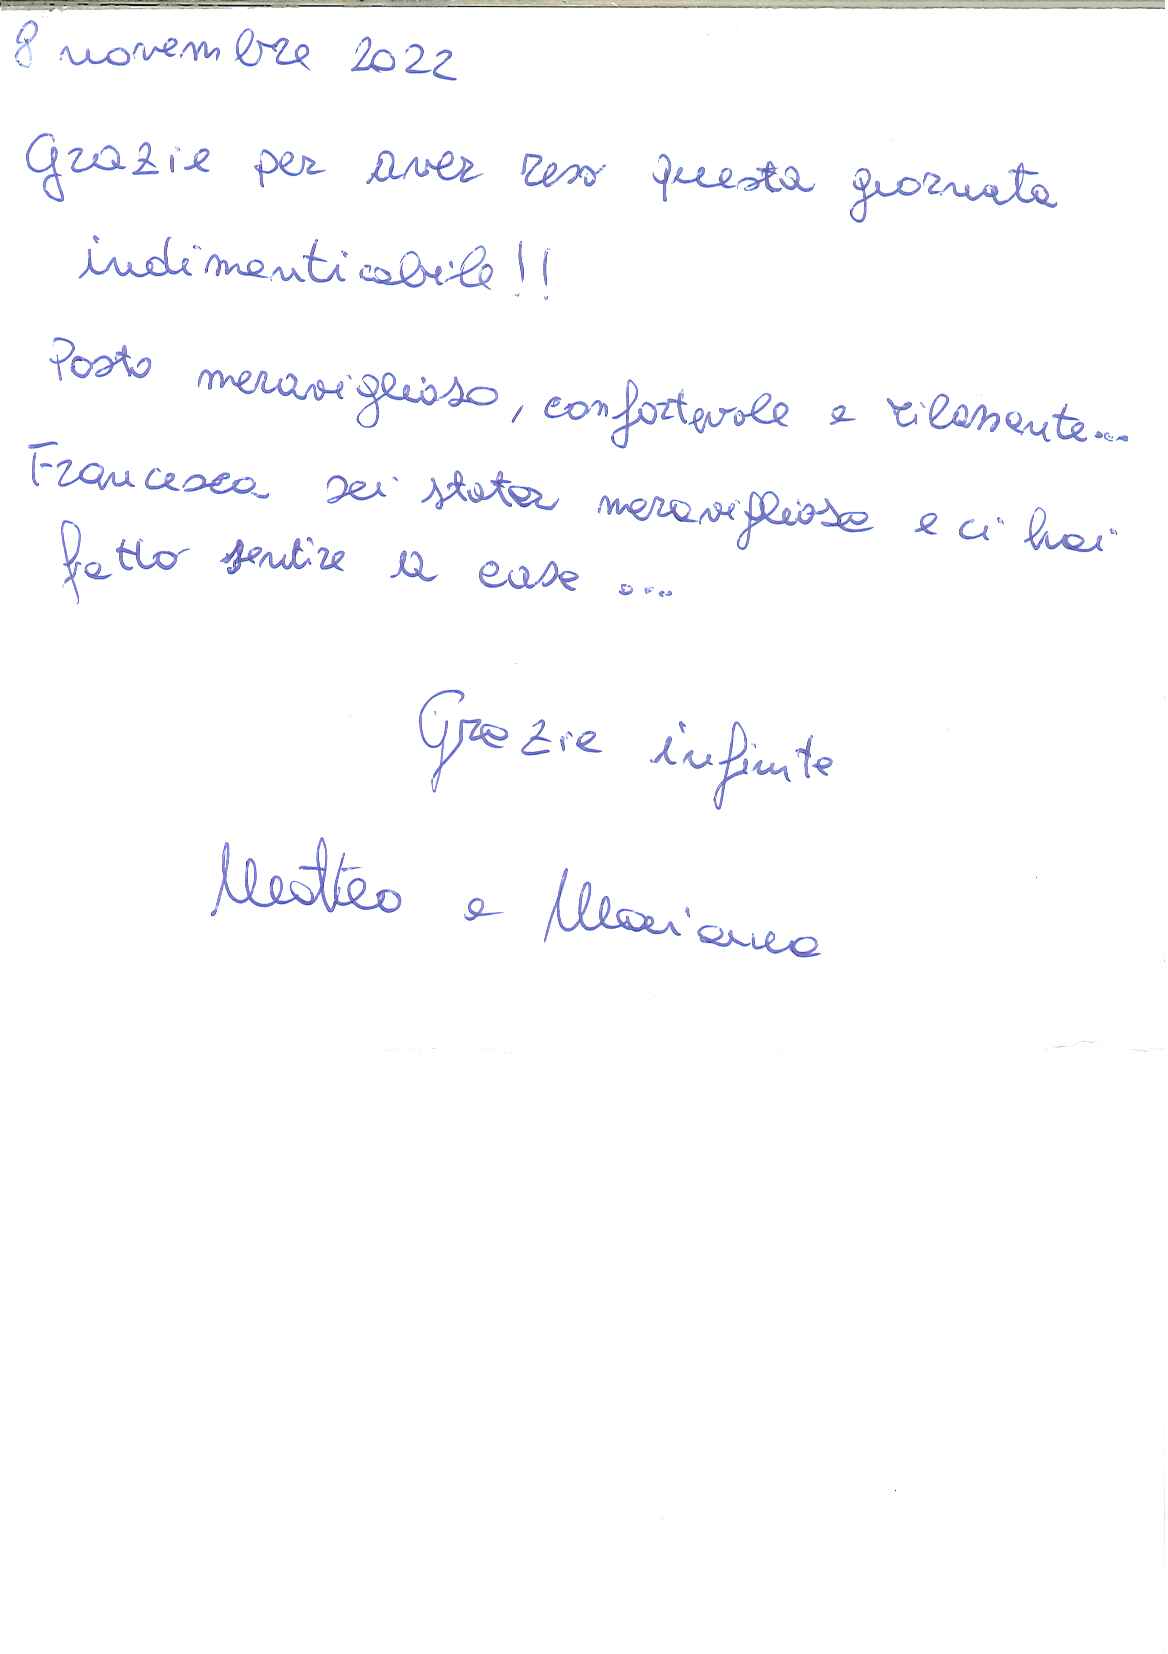 8 novembre 2022
Grazie per aver reso questa giornata
indimenticabile!!
Posto meraviglioso, confortevole e rilassante...
Francesca sei stata meravigliosa e ci hai
fatto sentire a casa ....
Grazie infinite
Matteo e Marianna